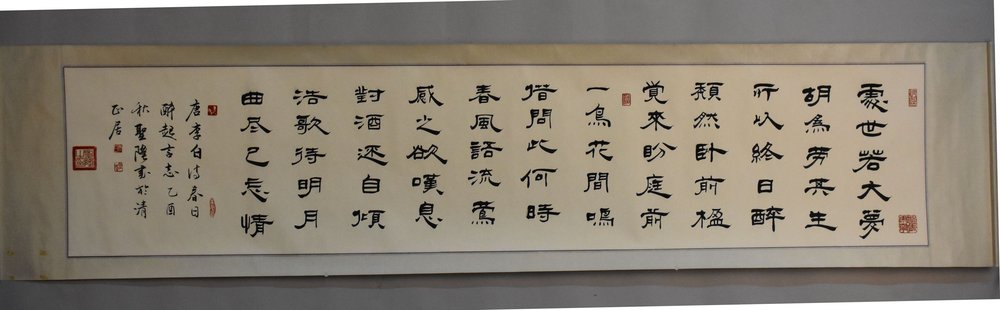 處世若大夢
胡為勞其生
所以終日醉
頹然臥前楹
覺來盼庭前
一鳥花間鳴
借問此何時
春風語流鶯
感之欲嘆息
對酒還自傾
浩歌待明月
曲尽已忘情
唐李白詩春日
醉起言志乙酉
秋聖陸書於清
正居